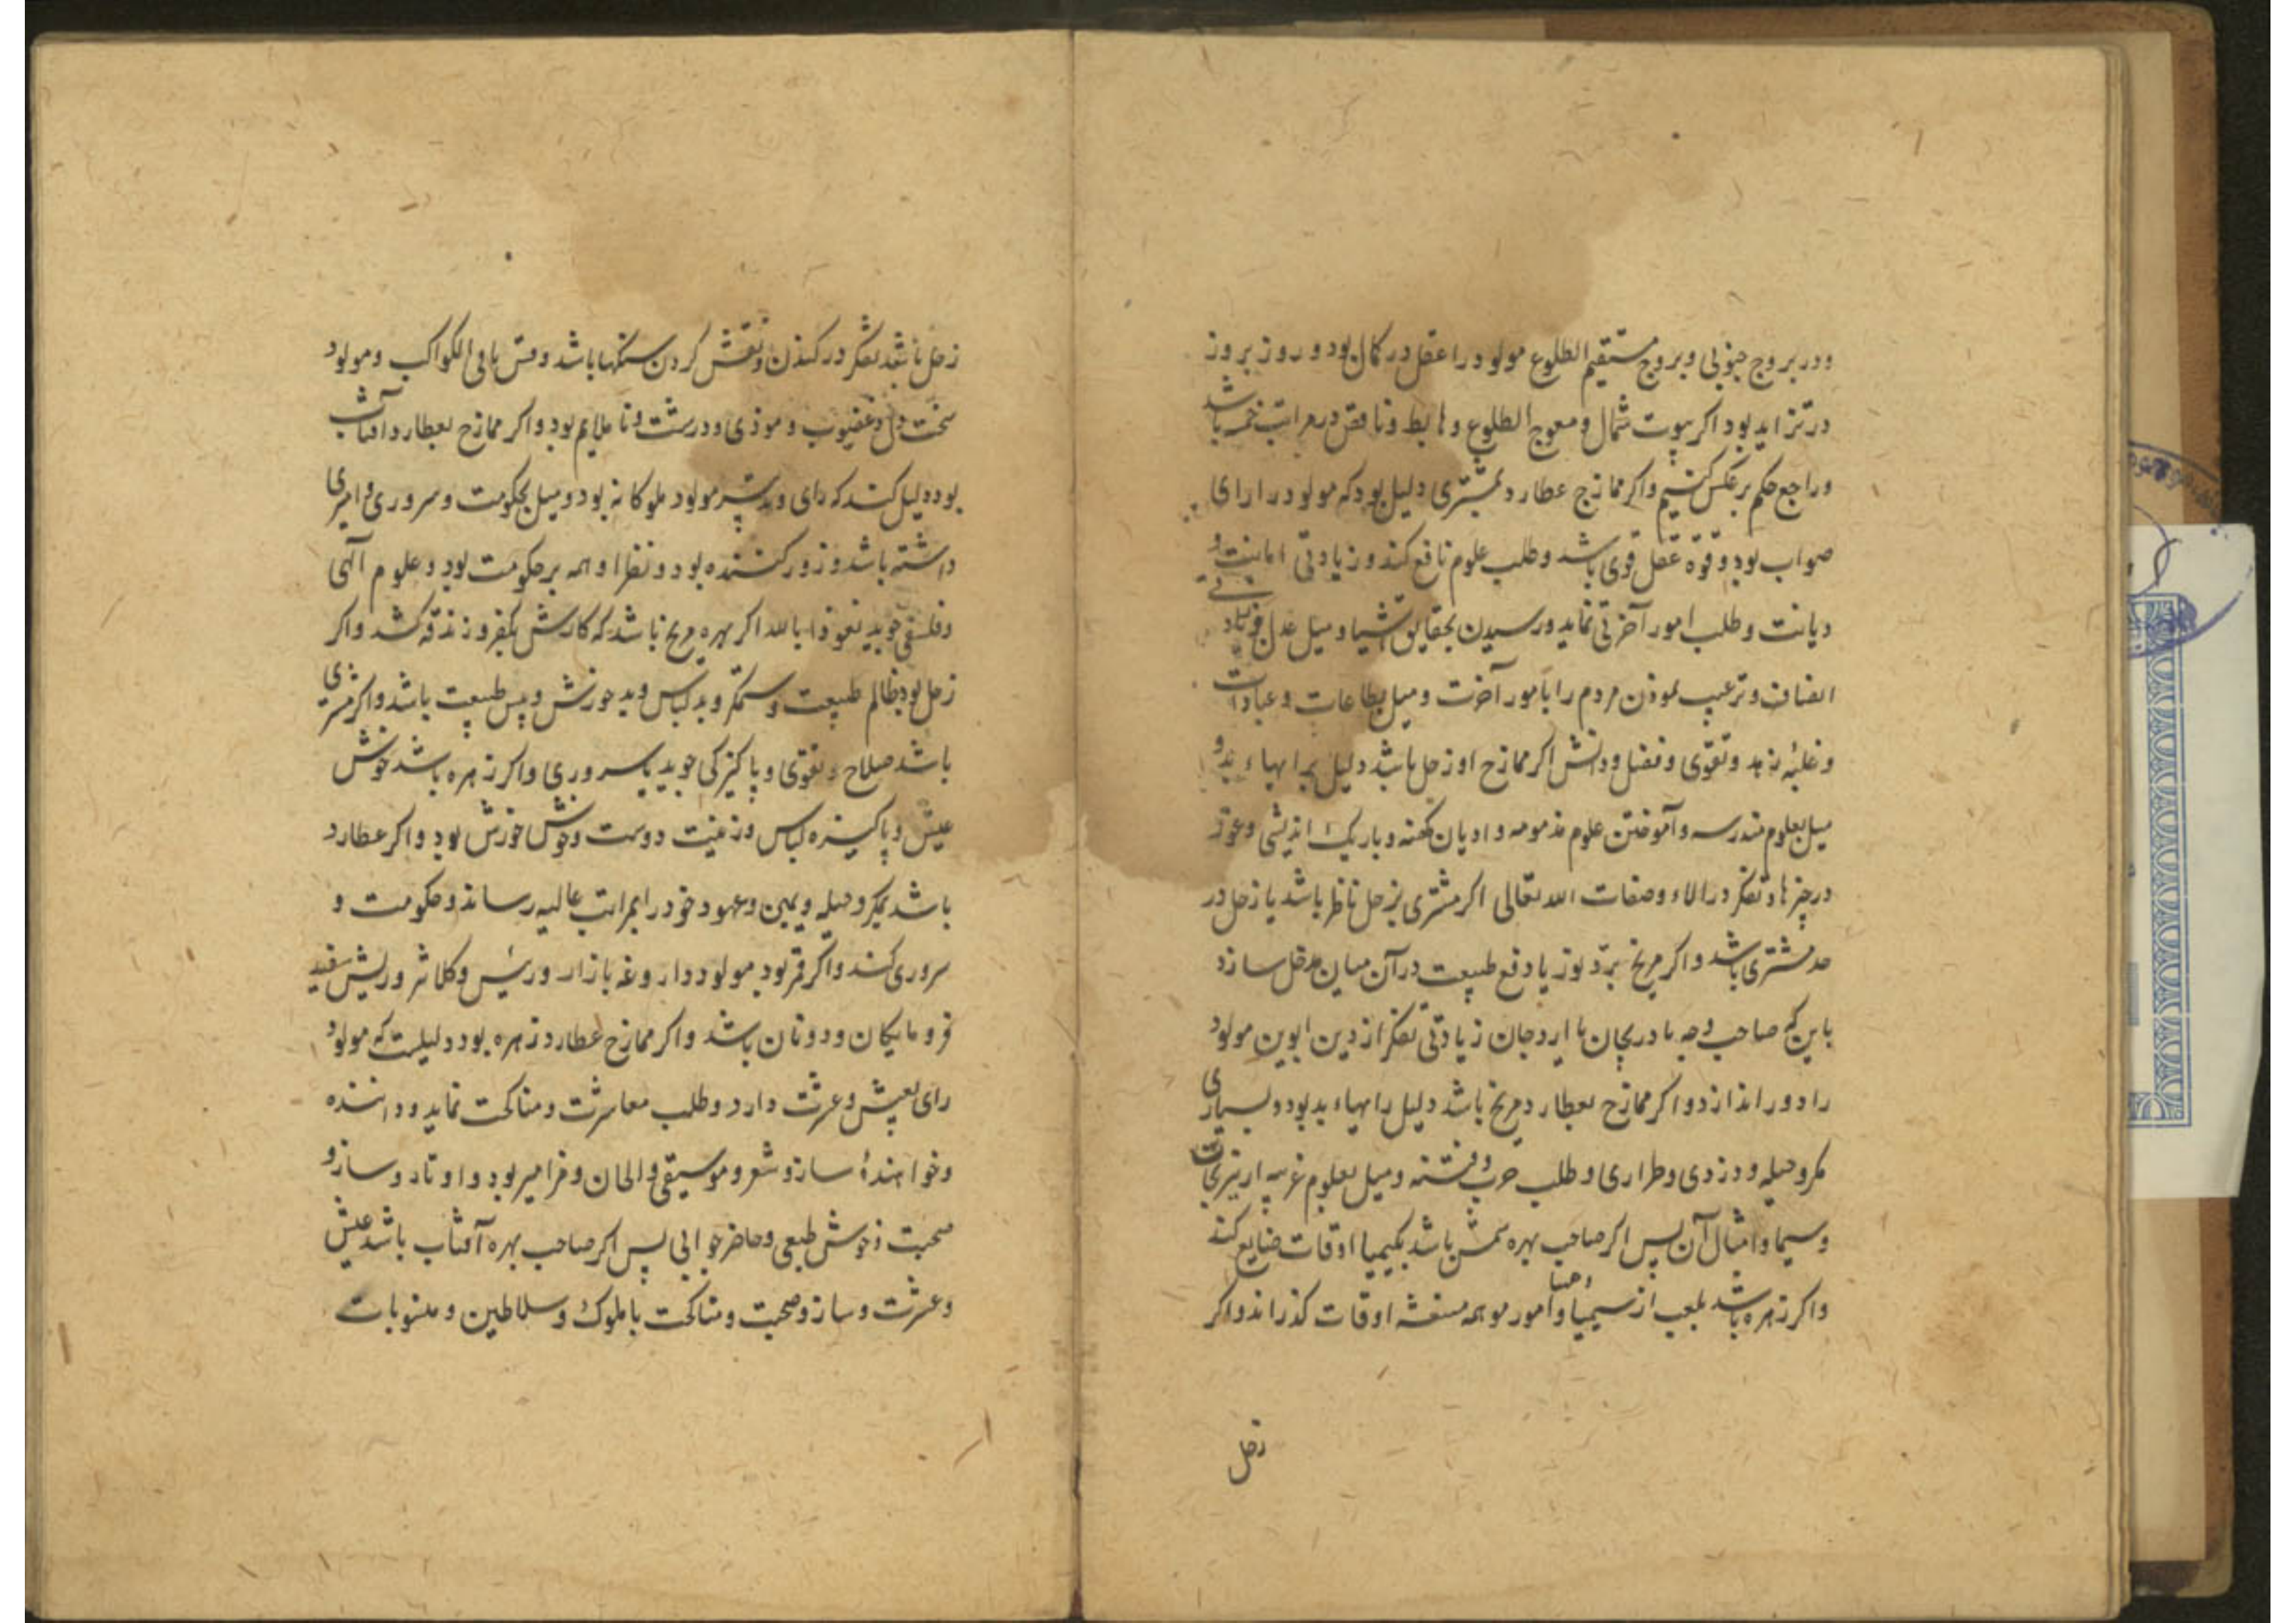 ودر بروج جنوبی و بروج مستقیم الطلوع مولود را عقل در کمال بود و روز بروز
در تزاید بود اکر بیوت شمال و معوج الطلوع و هابط و ناقص در مراتب خمسه باشد
و راجع حکم بر عکس کنیم واکر ممازج عطارد مشتری دلیل بود که مولود را رای
صواب بود و قوة عقل قوی باشد و طلب علوم نافع کند و زیادتی امانت و
دیانت و طلب امور آخرتی نماید و رسیدن بحقایق اشیا و میل عدل و
انصاف و ترغیب نمودن مردم را بامور آخرت و میل بطاعات و عبادات
و غلبهٔ زهد و تقوی و فضل و دانش اکر ممازج او زحل باشد دلیل برابهاء بد و
میل بعلوم مندرسه و آموختن علوم مذمومه و ادیان کهنه و باریک اندیشی و غور
در چیزها و تفکر در الاء وصفات الله تعالی اکر مشتری بزحل ناظر باشد یا زحل در
حد مشتری باشد واکر مریخ برد نور یا دفع طبیعت در آن میان مدخل سازد
باین که صاحب وجه یا دریجان یا اردجان زیادتی تفکر از دین ابوین مولود
را دور اندازد واکر ممازج بعطارد مریخ باشد دلیل رایهاء بد بود و بسیاری
مکر و حیله و دزدی و طراری و طلب حرب و فتنه و میل بعلوم غریبه از نیرنجات
و سیمیا و امثال آن پس اکر صاحب بهره شمس باشد بکیمیا اوقات ضایع کند
واکر زهره باشد بلعب از سیمیا و امور موهمه اوقات کذراند واکر
زحل
زحل باشد تفکر در کندن و نقش کردن سنکها باشد و قس باقی الکواکب و مولود
سخت دل و غضوب و موذی و درشت و نا ملایم بود واکر ممازج بعطارد آفتاب
بود دلیل کند که رای و تدبیر مولود ملوکانه بود و میل بحکومت و سروری و امیری
داشته باشد و زور کننده بود و نظر او همه بر حکومت بود و علوم الهی
و فلسفی جوید نعوذا بالله اکر بهره مریخ باشد که کارش بکفر و زندقه کشد واکر
زحل بود ظالم طبیعت و ستمکر و بد لباس و بد خورش و پس طبیعت باشد واکر مشتری
باشد صلاح و تقوی و پاکیزکی جوید با سروری واکر زهره باشد خوش
عیش و پاکیزه لباس و زینت دوست و خوش خورش بود واکر عطارد
باشد بمکر و حیله و یمین و عهود خود را بمراتب عالیه رساند و حکومت و
سروری کند واکر قمر بود مولود داروغه بازار و رئیس و کلانتر و ریش سفید
فرو مایکان و دونان باشد واکر ممازج عطارد زهره بود دلیلست که مولود
رای بعیش و عشرت دارد و طلب معاشرت و مناکحت نماید و داننده
و خوانندهٔ ساز و شعر و موسیقی و الحان و مزامیر بود و اوتار و ساز و
صحبت و خوش طبعی و حاضر جوابی پس اکر صاحب بهره آفتاب باشد عیش
و عشرت و ساز و صحبت و مناکحت با ملوک و سلاطین و منسوبات